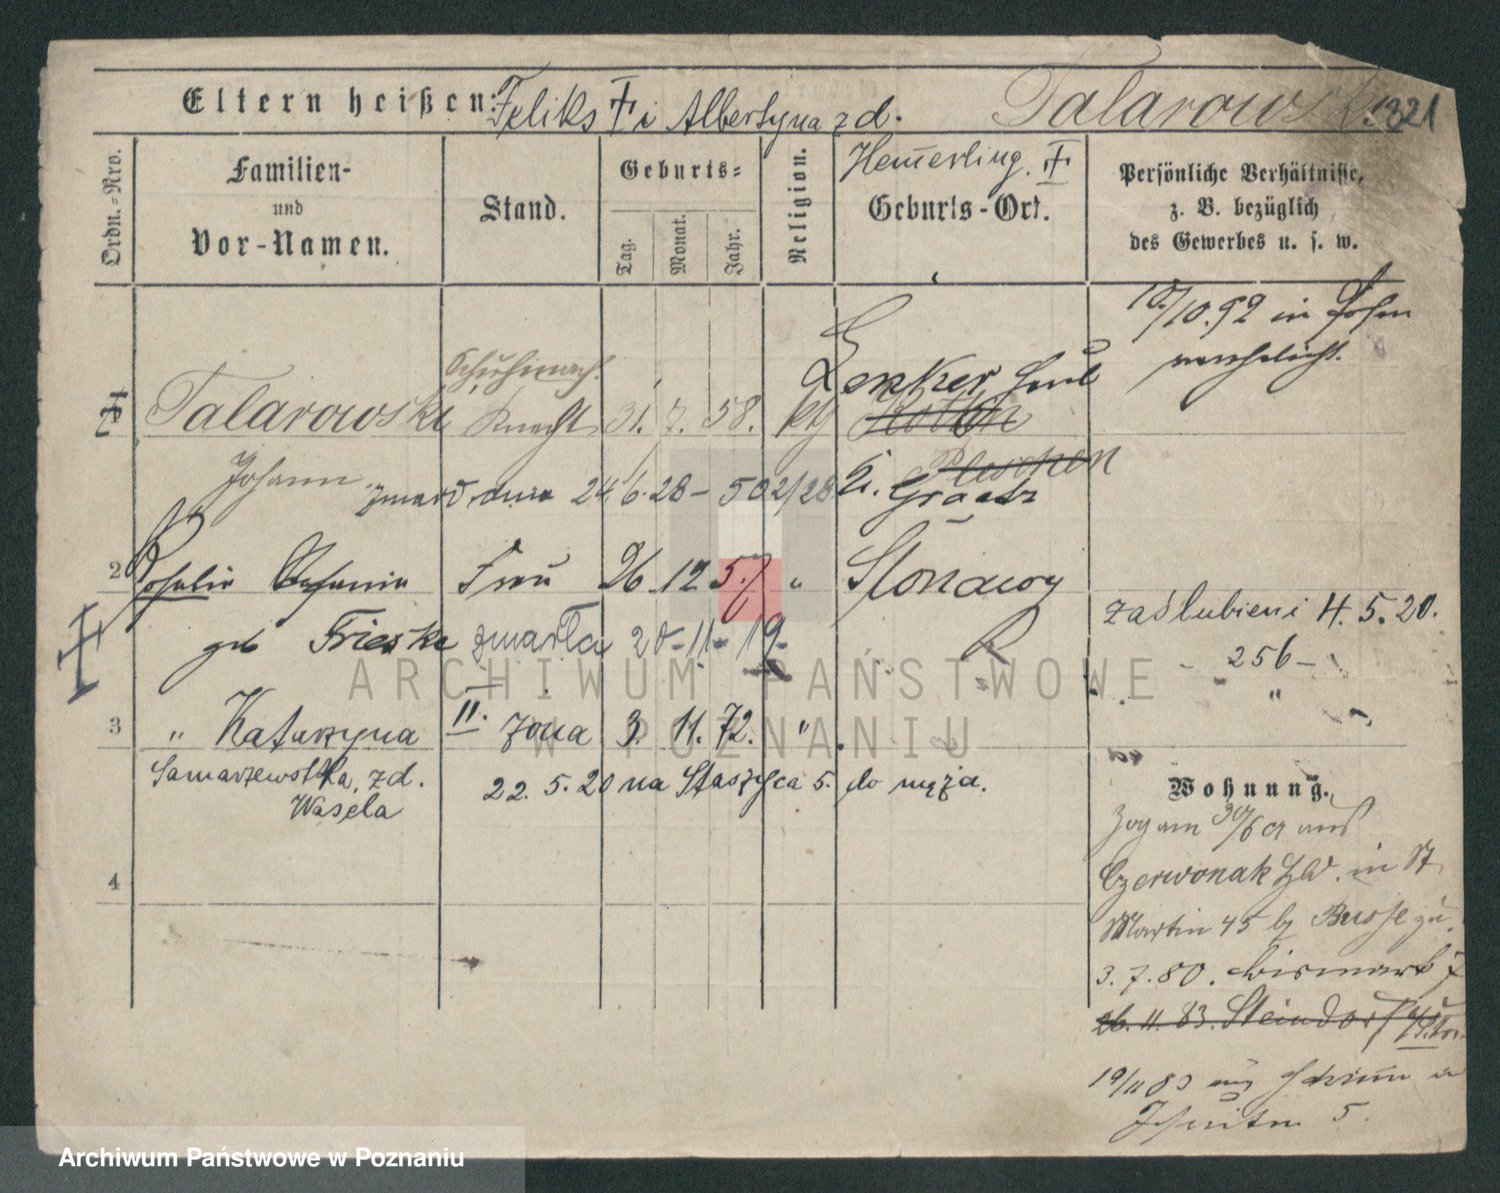 Eltern heißen: Feliks † i Albertyna zd.
Talarowski 1321
Hemerling. †
Ordn.-Nro.
Familien-
und
Vor-Namen.
Stand.
Geburts-
Tag.
Monat.
Jahr.
Religion.
Geburts-Ort.
Persönliche Verhältnisse,
z. B. bezüglich
des Gewerbes u. s. w.
10/10.92 in Posen
verehelicht.
Schuhmach.
Talarowski Knecht 31. 7. 58. kth
Johann
zmarł dnia 24 6. 28 - 502/28
Kr. Graetz
Pleschen
2 Rosalie Stefanie Frau 26. 12 57 "
geb Frieske zmarła 20-11-19
zaślubieni 4. 5. 20.
- 256 -
"
3 " Katarzyna II. żona 3. 11. 72. "
Samarzewska, zd.
Wasela
22. 5. 20 na Staszyca 5. do męża.
4
Wohnung.
Zog am 30/6 aus
Czerwonak in St
Martin 45 Busse zu.
3. 7. 80. Bismark 7
26. 11. 83. Steindorf
19/11 83 aus Schrimm in
Jesuiten 5.
ARCHIWUM PAŃSTWOWE
W POZNANIU
Archiwum Państwowe w Poznaniu